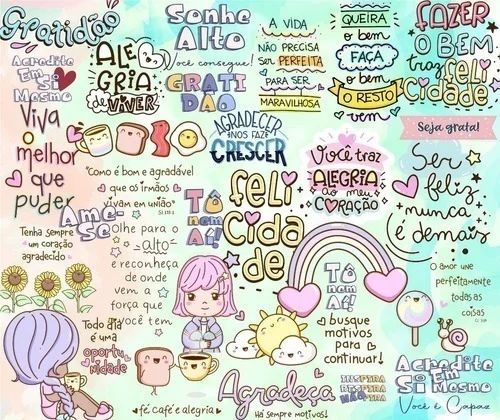 Gratidão
Acredite
Em
Si
Mesmo
Viva
o
melhor
que
puder
ALE
GRIA
de VIVER
Sonhe
Alto
você consegue!
GRATI
DÃO
AGRADECER
NOS FAZ
CRESCER
A VIDA
NÃO PRECISA
SER PERFEITA
PARA SER
MARAVILHOSA
QUEIRA
o bem
FAÇA
o bem
O RESTO
vem
FAZER
O BEM
traz
feli
Cidade
Seja grata!
Ser
feliz
nunca
é demais
Você traz
ALEGRIA
ao meu
CORAÇÃO
"Como é bom e agradável
que os irmãos
vivam em união"
Ame-
Se
Tenha sempre
um coração
agradecido
Olhe para o
alto
e reconheça
de onde
vem a
força que
você tem
Tô
nem
Aí!
feli
Cida
de
Tô
nem
Aí!
busque
motivos
para
continuar!
O amor une
perfeitamente
todas as
coisas
Todo dia
é uma
oportu
nidade
fé café e alegria
Agradeça
Há sempre motivos!
INSPIRA
RESPIRA
NÃO PIRA
Acredite
Em
Si
Mesmo
Você é Capaz